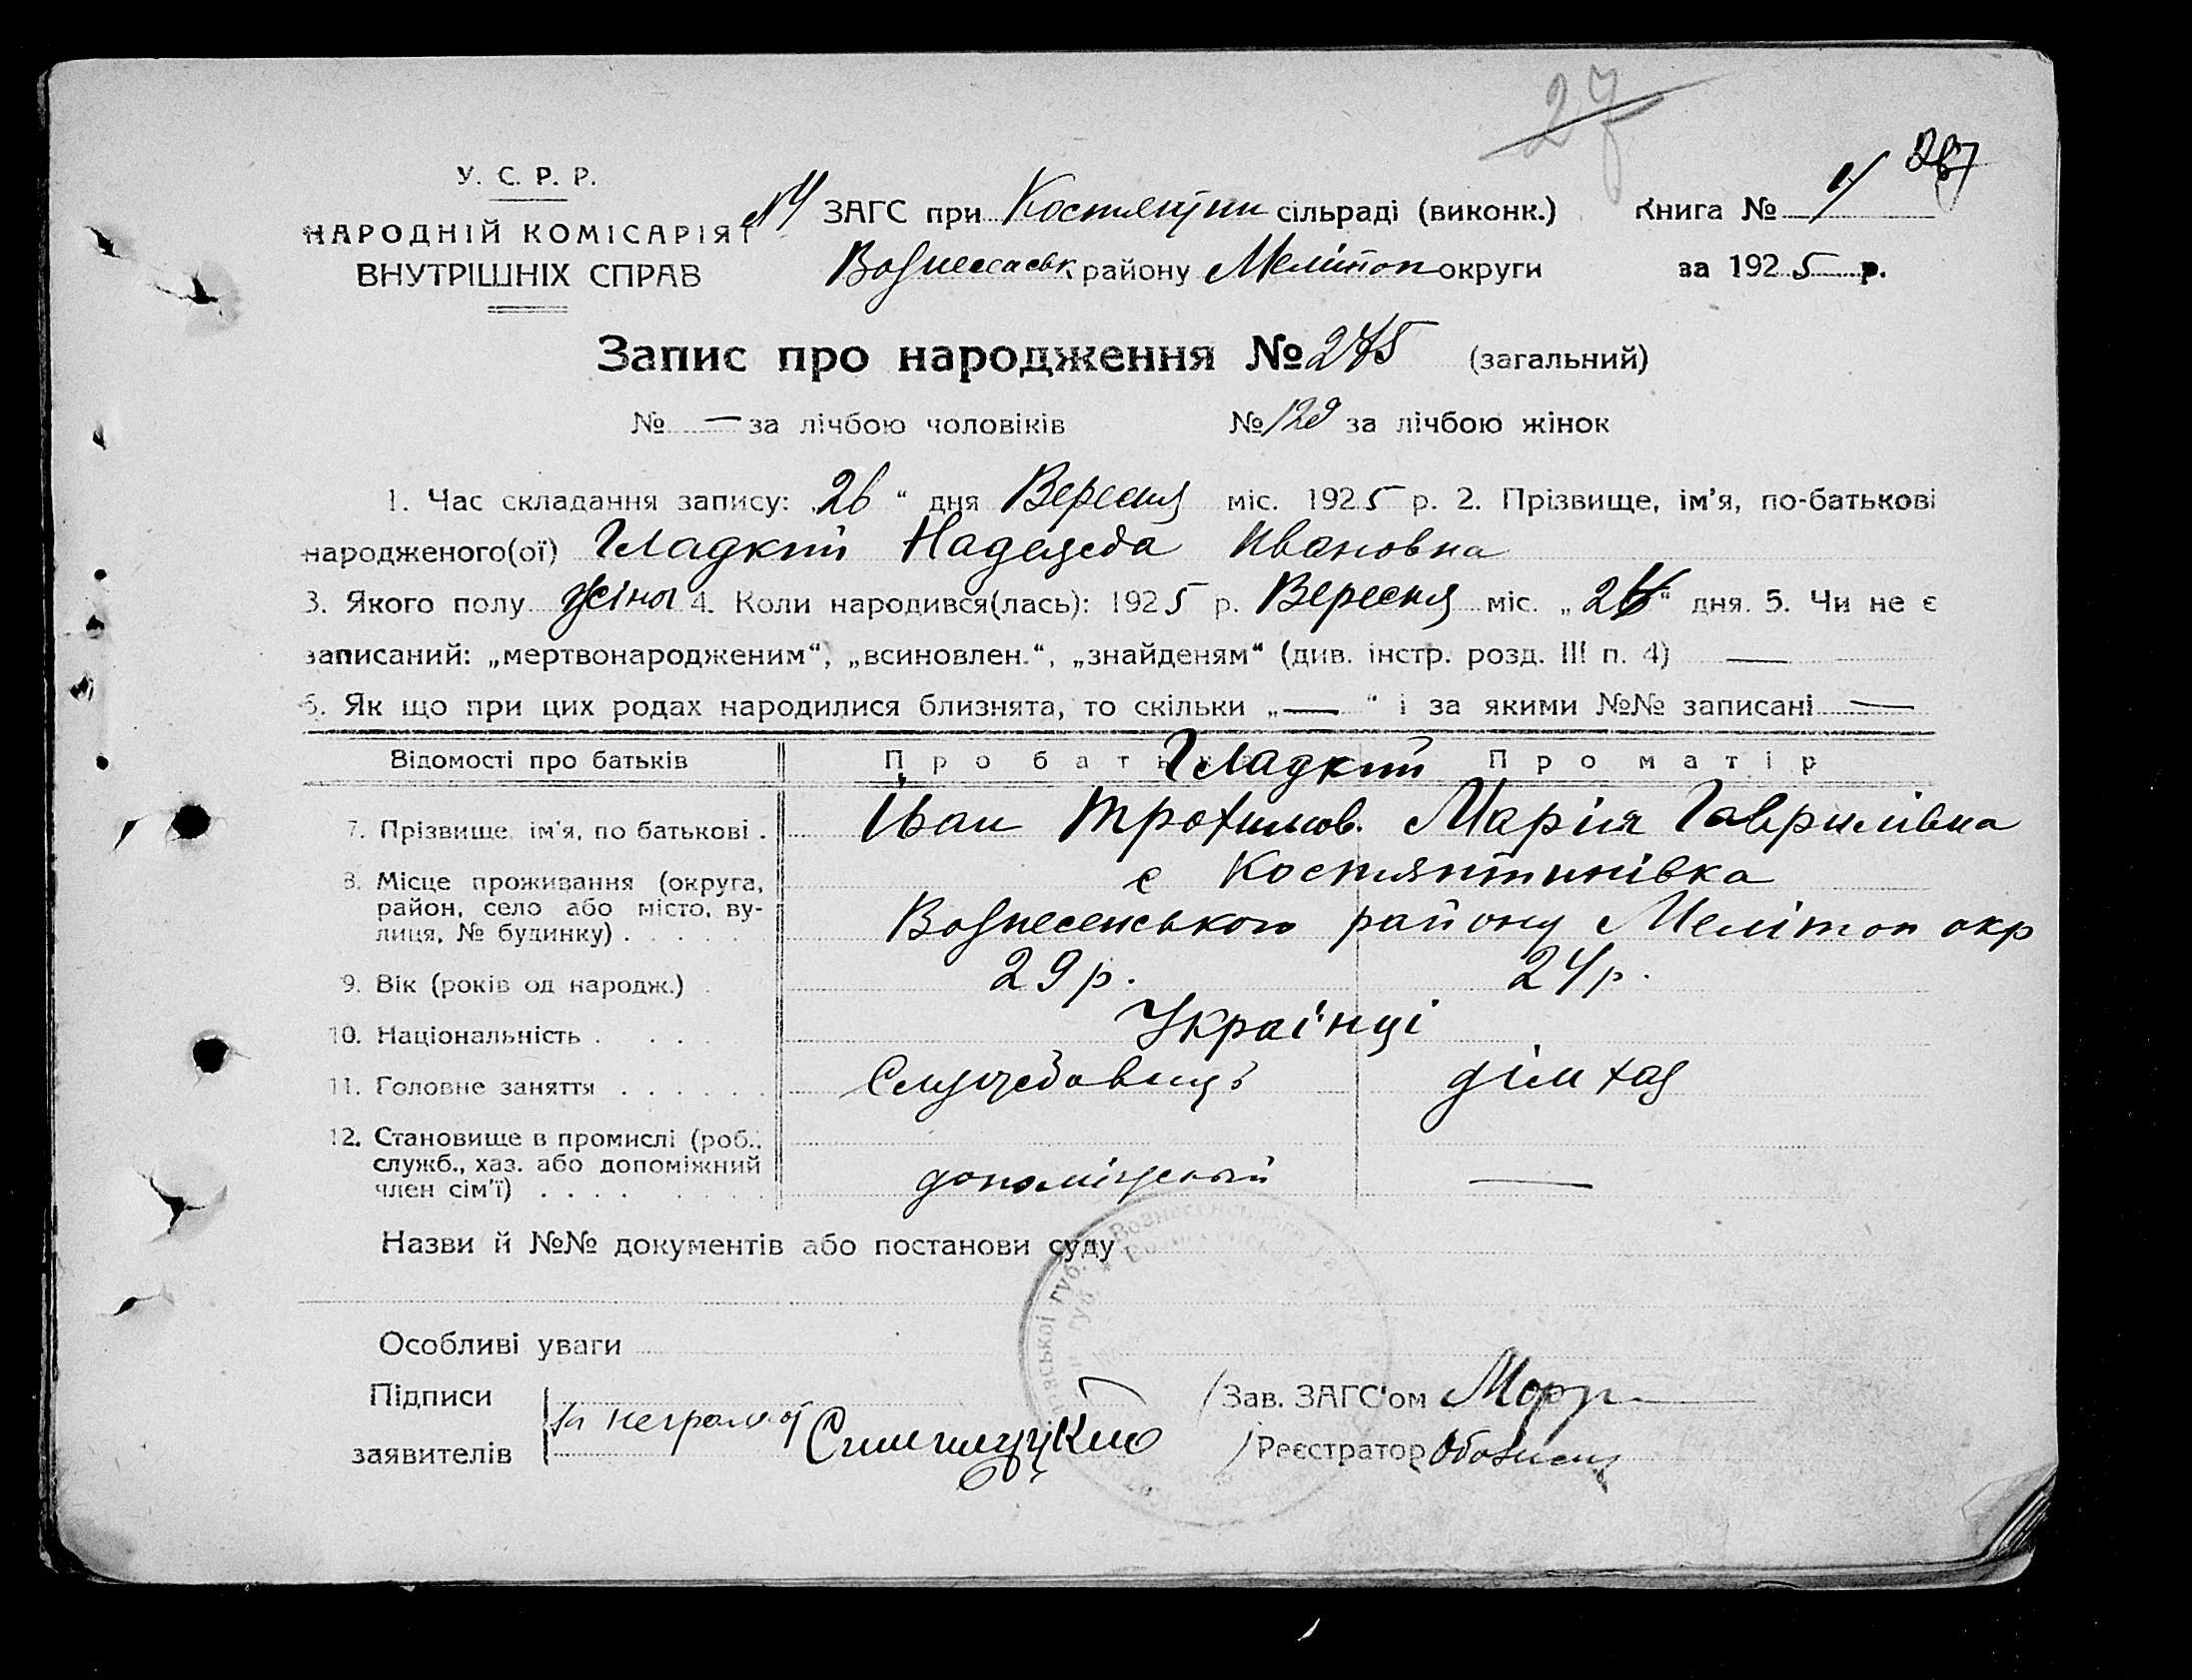 27
287
У. С. Р. Р.
НАРОДНІЙ КОМІСАРІЯТ
ВНУТРІШНІХ СПРАВ
ЗАГС при Костянтин сільраді (виконк.) Книга №
Вознесенськ району Мелітоп округи за 1925 р.
Запис про народження № 275 (загальний)
№ — за лічбою чоловіків № 129 за лічбою жінок
1. Час складання запису: „26“ дня Вересня міс. 1925 р. 2. Прізвище, ім'я, по-батькові
народженого(ої) Гладкий Надежда Ивановна
3. Якого полу жіноч 4. Коли народився(лась): 1925 р. Вересня міс. „ “ дня. 5. Чи не є
записаний: „мертвонародженим“, „всиновлен.“, „знайденям“ (див. інстр. розд. III п. 4) —
6. Як що при цих родах народилися близнята, то скільки „—“ і за якими №№ записані —
Відомості про батьків Про батька Про матір
Гладкий
7. Прізвище, ім'я, по батькові . Іван Трохимов. Марія Гаврилівна
8. Місце проживання (округа, с Костянтинівка
район, село або місто, ву-
лиця, № будинку) . . . . . Вознесенського району Мелітоп окр
9. Вік (років од народж.) . 29 р. 24 р.
10. Національність . . . . Українці
11. Головне заняття . . . . . . Службовець дім хаз
12. Становище в промислі (роб.,
служб., хаз. або допоміжний
член сім'ї) . . . . . . . . допоміжний —
Назви й №№ документів або постанови суду
Особливі уваги
Підписи
заявителів
за неграмот
Зав. ЗАГС'ом
Реєстратор